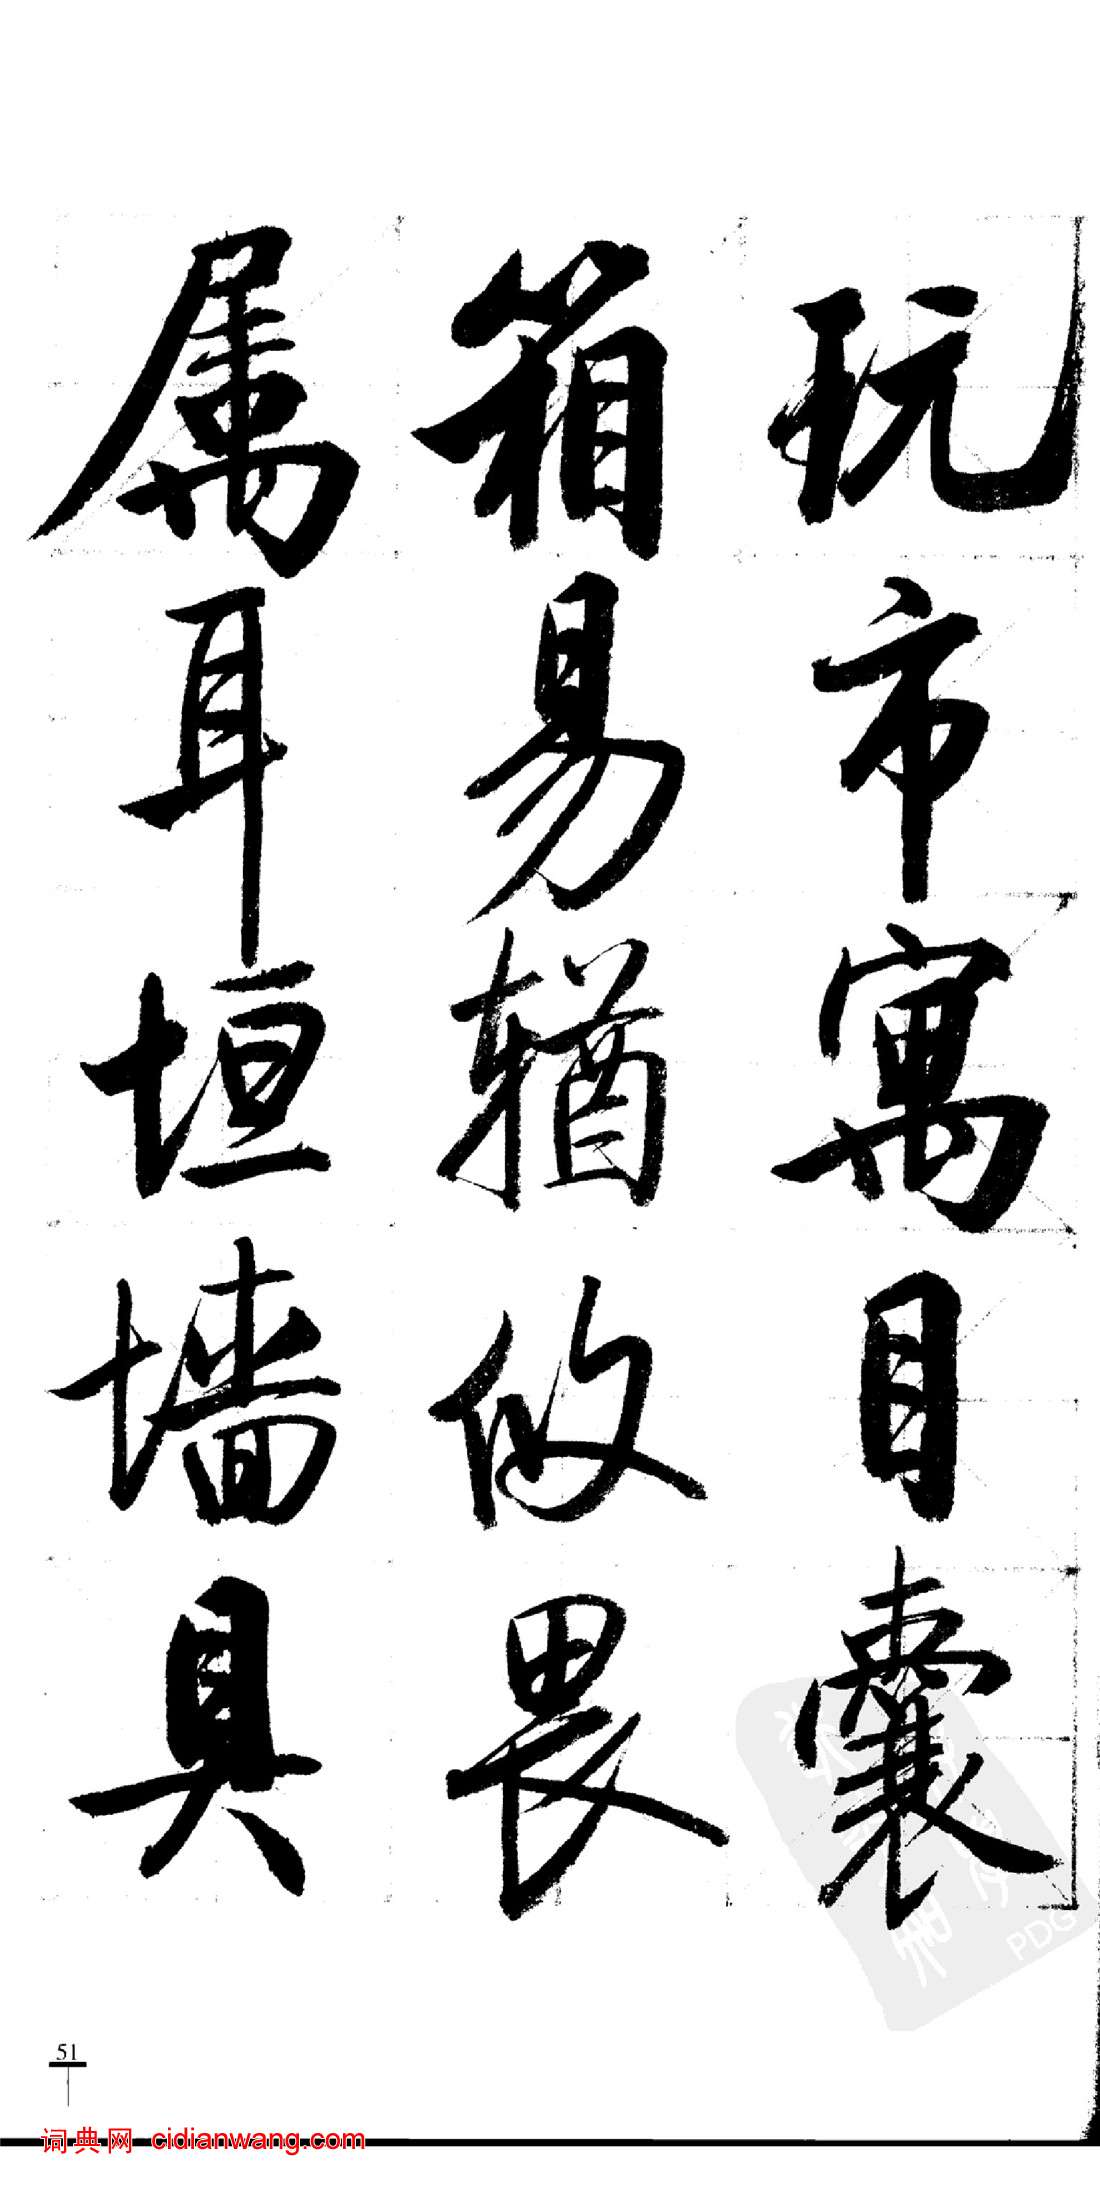 玩市寓目囊
箱易輶攸畏
属耳垣墙具
51
词典网 cidianwang.com
PDG